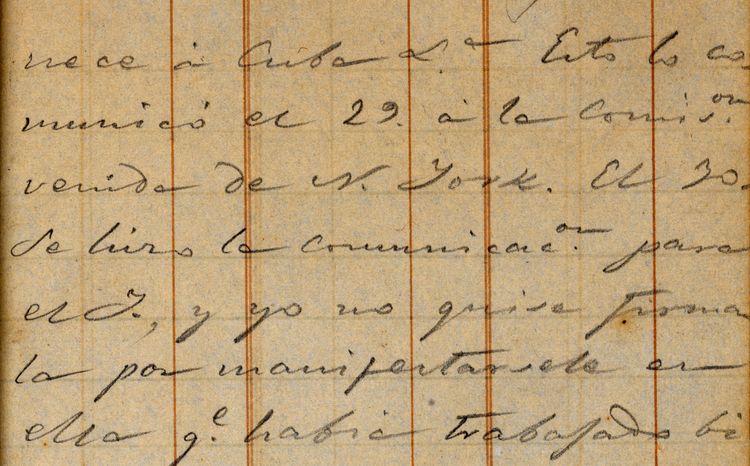 nece á Cuba L.ª Esto lo co
municó el 29. á la Comis.on
venida de N. York. El 30.
Se hizo la comunicac.on para
el J., y yo no quise firma
la por manifestarsele en
ella q.e habia trabajado bi